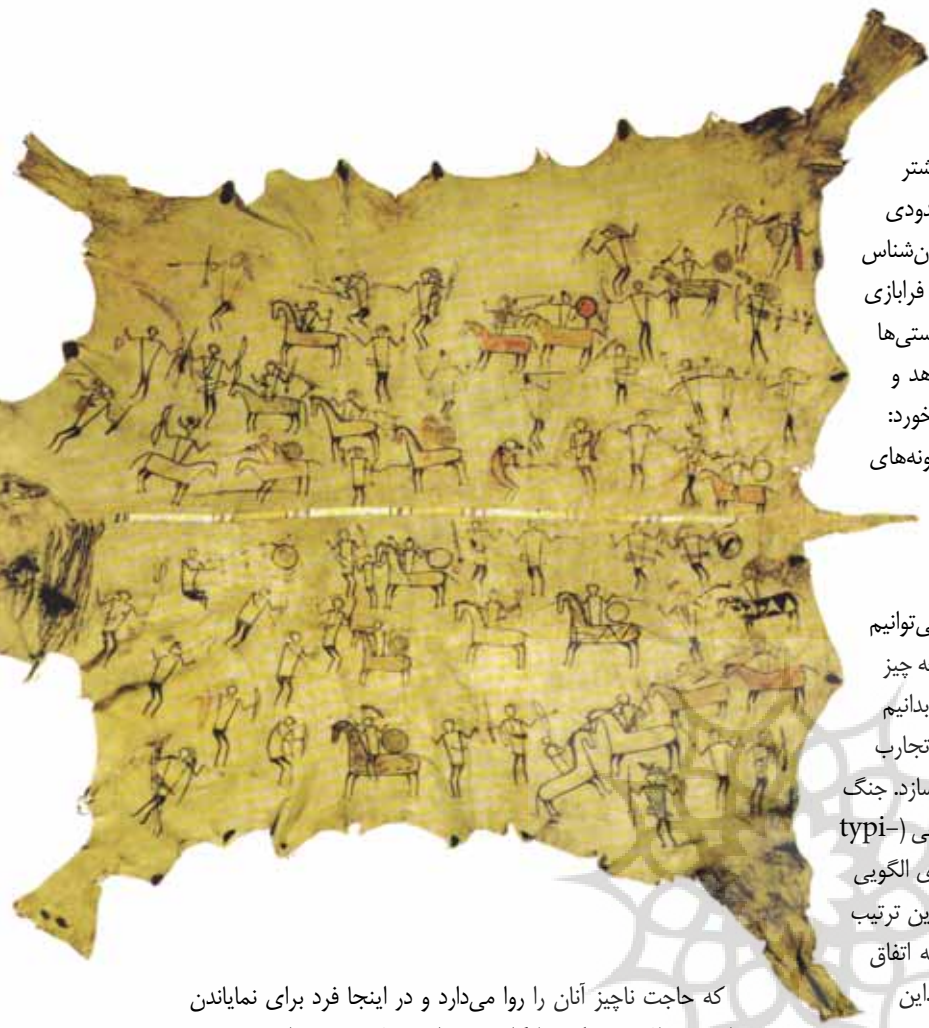 شتر
دودی
ن‌شناس
فرابازی
ستی‌ها
هد و
خورد:
ونه‌های
ی‌توانیم
ه چیز
بدانیم
تجارب
سازد. جنگ
ی (-typi
ی الگویی
ین ترتیب
ه اتفاق
این
که حاجت ناچیز آنان را روا می‌دارد و در اینجا فرد برای نمایاندن